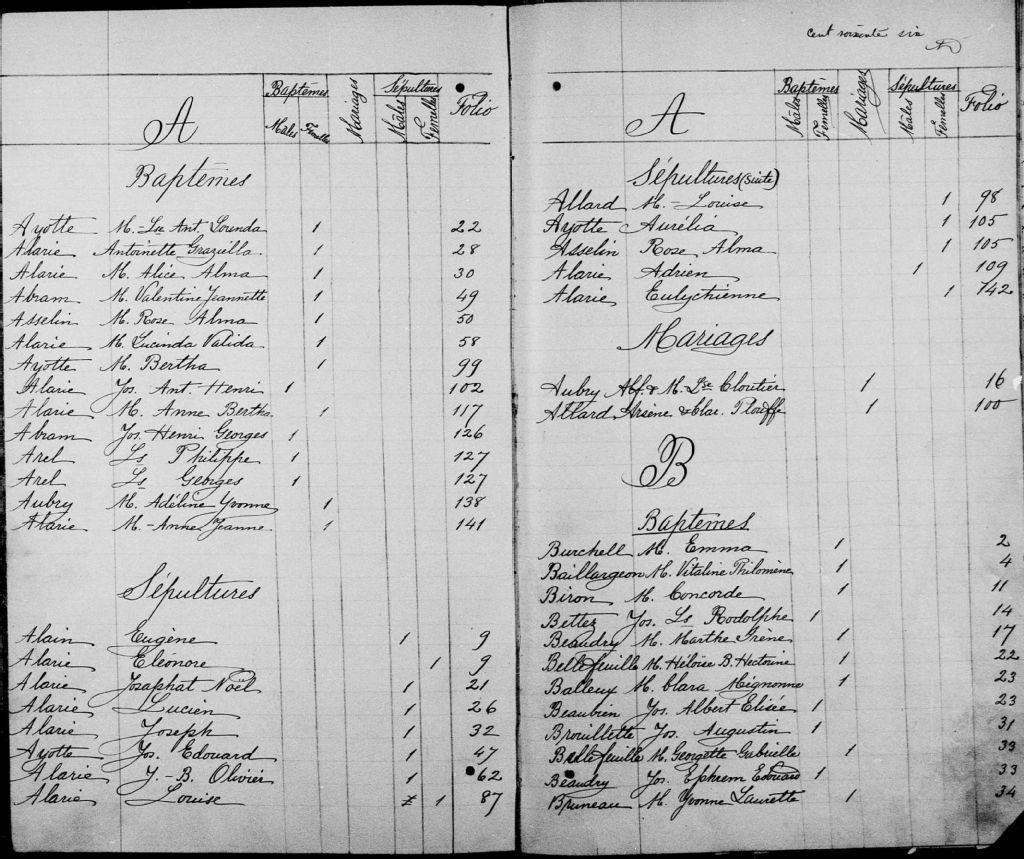 Baptêmes Mariages Sépultures Folio
A Mâles Femelles Mâles Femelles
Baptêmes
Ayotte M.-Lse Ant. Lounda 1 22
Alarie Antoinette Graziella 1 28
Alarie M. Alice Alma 1 30
Abram M. Valentine Jeannette 1 49
Asselin M. Rose Alma 1 50
Alarie M. Lucinda Valida 1 58
Ayotte M. Bertha 1 99
Alarie Jos. Ant. Henri 1 102
Alarie M. Anne Bertha 1 117
Abram Jos. Henri Georges 1 126
Arel Ls Philippe 1 127
Arel Ls Georges 1 127
Aubry M. Adéline Yvonne 1 138
Alarie M.-Anne Jeanne 1 141
Sépultures
Alain Eugène 1 9
Alarie Eléonore 1 9
Alarie Josaphat Noël 1 21
Alarie Lucien 1 26
Alarie Joseph 1 32
Ayotte Jos. Edouard 1 47
Alarie J.-B. Olivier 1 62
Alarie Louise 1 87
cent soixante six
Baptêmes Mariages Sépultures Folio
A Mâles Femelles Mâles Femelles
Sépultures (suite)
Allard M.-Louise 1 98
Ayotte Aurélia 1 105
Asselin Rose Alma 1 105
Alarie Adrien 1 109
Alarie Eulychienne 1 142
Mariages
Aubry Alf. & M. Lse Cloutier 1 16
Allard Arsène & Clar. Plouffe 1 100
B
Baptêmes
Burchell M. Emma 1 2
Baillargeon M. Vitaline Philomène 1 4
Biron M. Concorde 1 11
Bettez Jos. Ls Rodolphe 1 14
Beaudry M. Marthe Irène 1 17
Bellefeuille M. Héloïse B. Hectorine 1 22
Balleux M. Clara Mignonne 1 23
Beaubien Jos. Albert Elisée 1 23
Brouillette Jos. Augustin 1 31
Bellefeuille M. Georgette Gabrielle 1 33
Beaudry Jos. Ephrem Edouard 1 33
Bruneau M. Yvonne Laurette 1 34